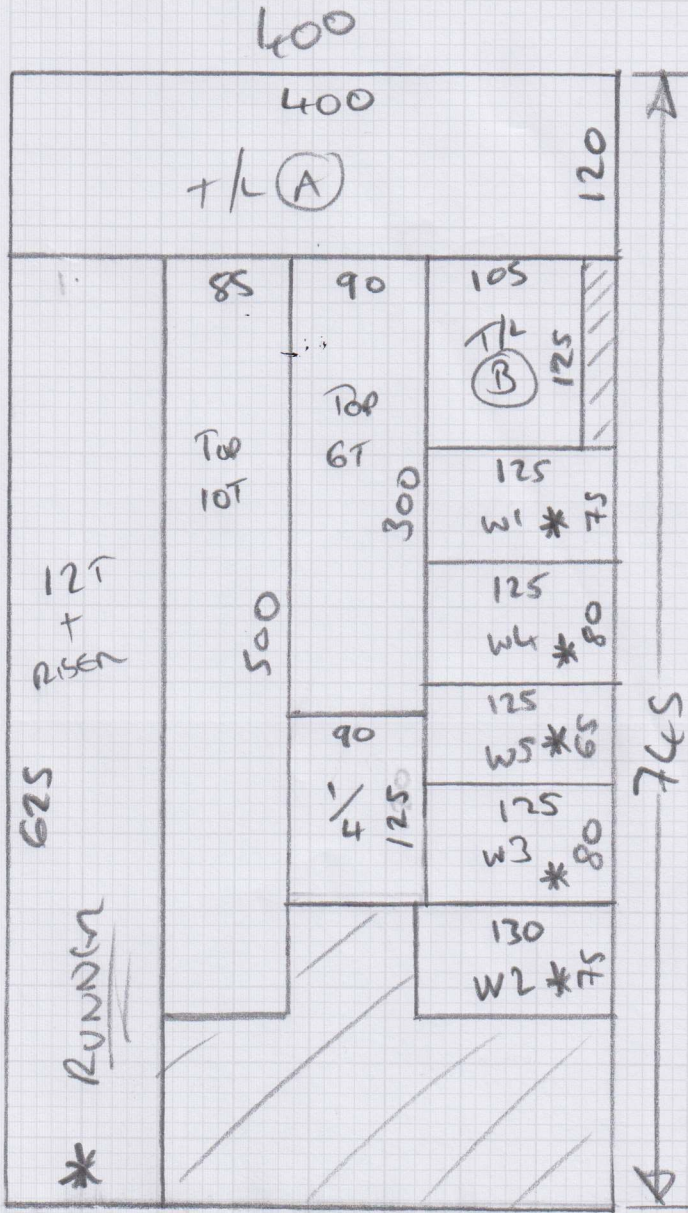 400
400
T/L A
120
85
90
105
T/L
B
125
Top
10T
Top
6T
300
125
W1 * 75
125
W4 * 80
12T
+
RISER
500
125
W5 * 65
745
90
1/4
125
125
W3 * 80
625
130
W2 * 75
* RUNNER